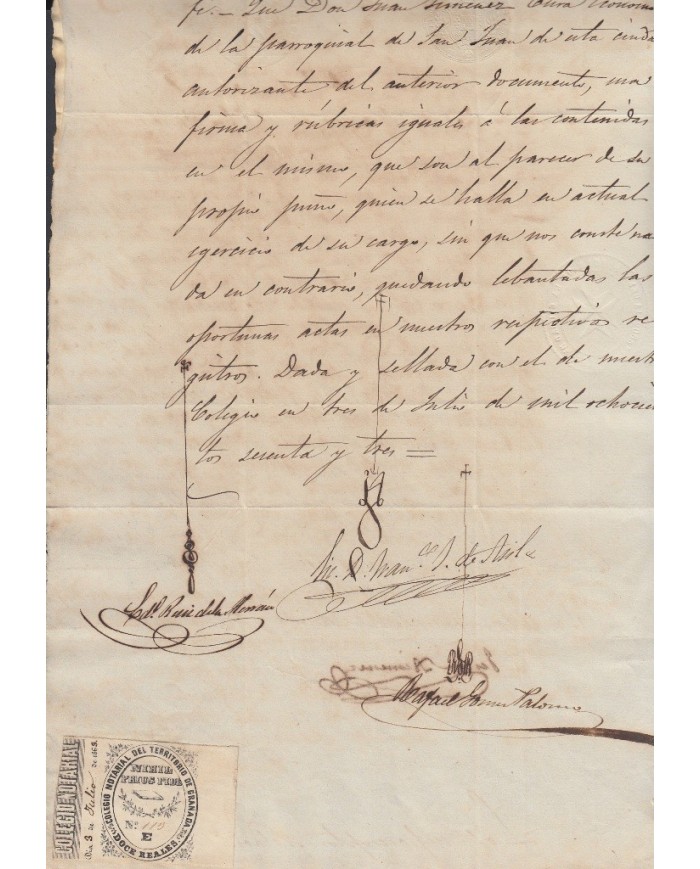 fe.- Que Don Juan Gimenez Cura Econom
de la parroquial de San Juan de esta ciuda
autorizante del anterior documento, usa
firma y rúbricas iguales á las contenidas
en el mismo, que son al parecer de su
propio puño, quien se halla en actual
egercicio de su cargo, sin que nos conste na
da en contrario, quedando lebantadas las
oportunas actas en nuestros respectivos re
gistros. Dada y sellada con el de nuestr
Colegio en tres de Julio de mil ochocien
tos sesenta y tres =
Lic. D. Fran.co de
Ruiz de la
Rafael Gomez Palomo
COLEGIO NOTARIAL
Dia 3 de Julio de 1863.
COLEGIO NOTARIAL DEL TERRITORIO DE GRANADA
NIHIL
PRIUS FIDE
N.º 113
E
DOCE REALES